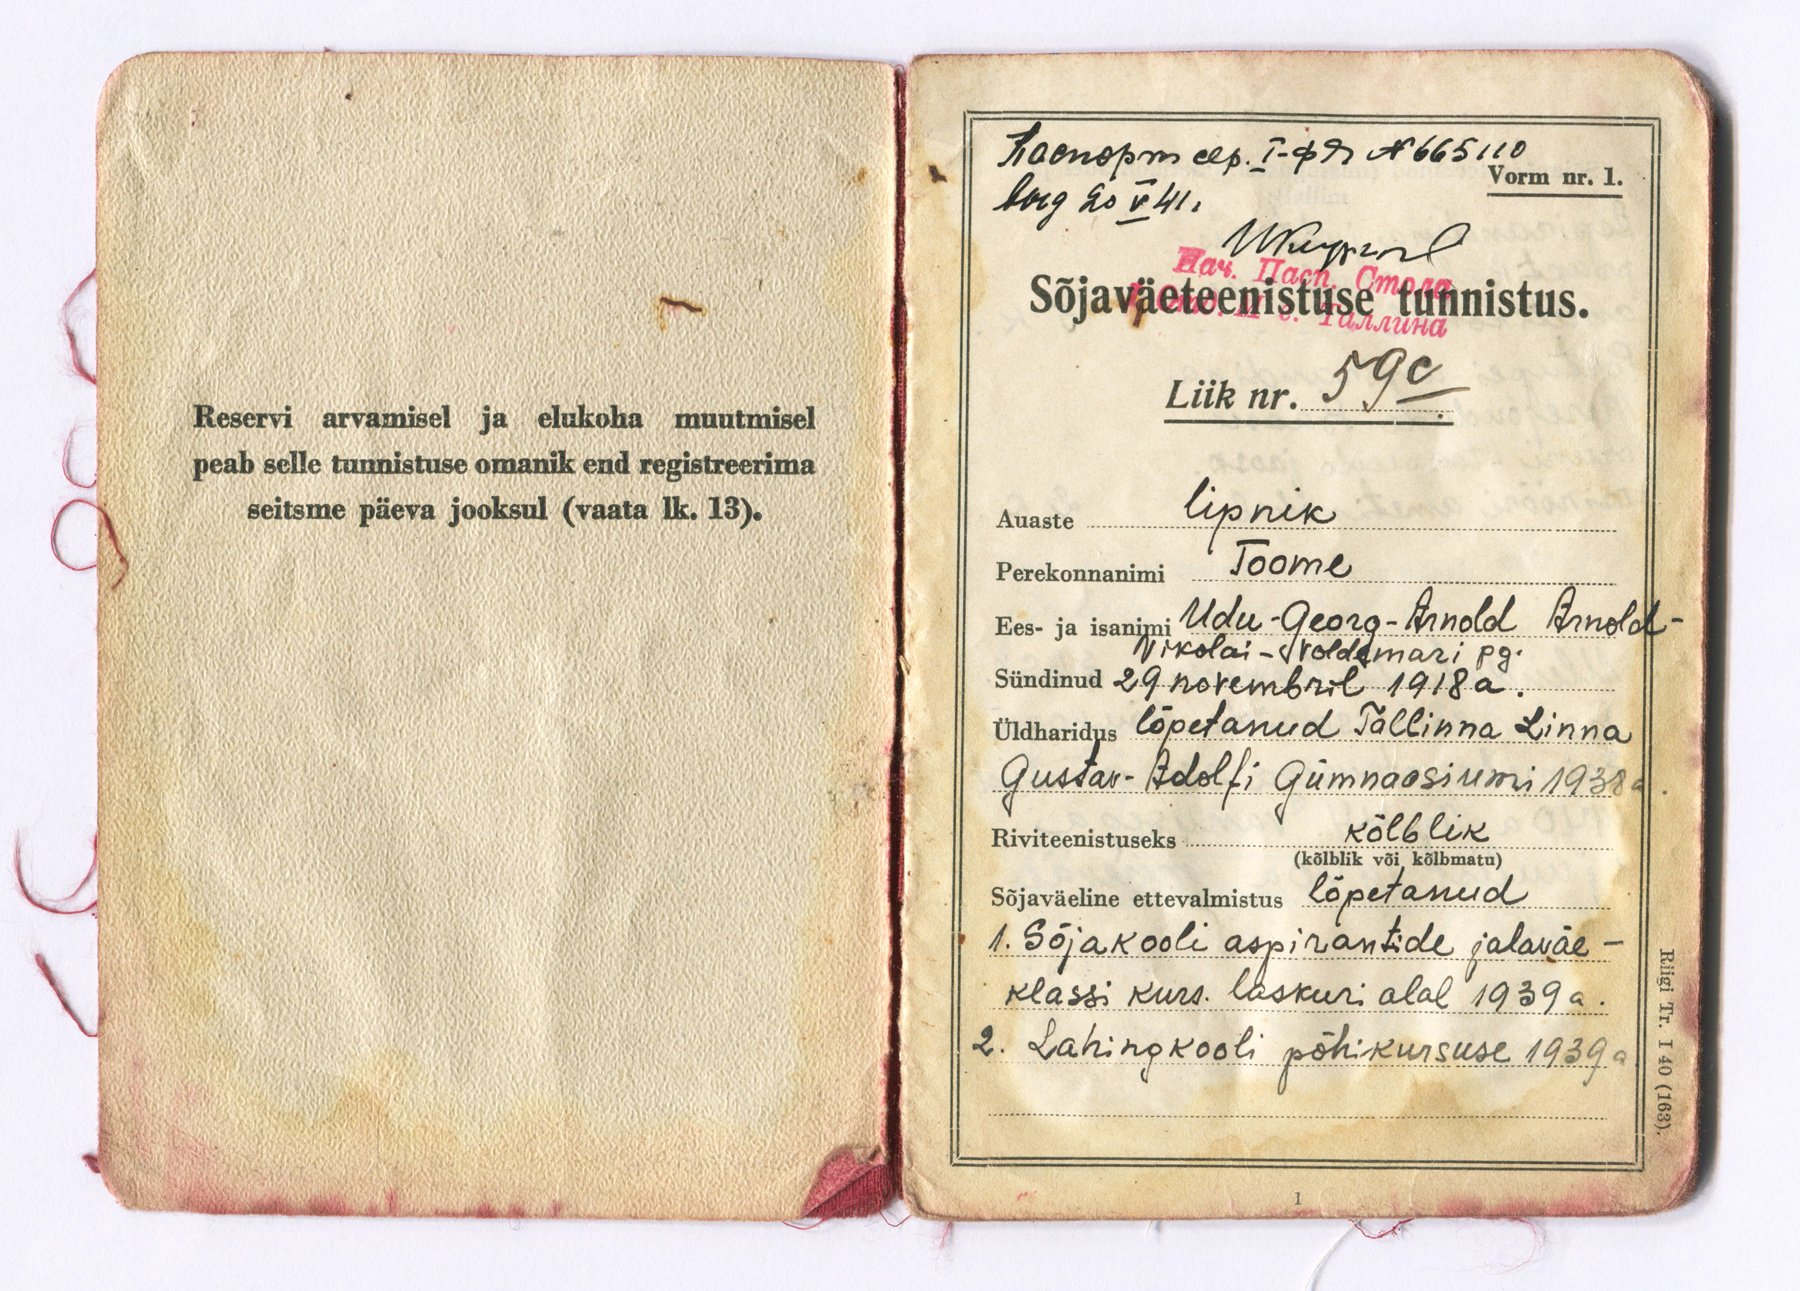 Reservi arvamisel ja elukoha muutmisel
peab selle tunnistuse omanik end registreerima
seitsme päeva jooksul (vaata lk. 13).
Паспорт сер. I-ФЯ № 665110
Vorm nr. 1.
20 V 41
Нач. Пасп. Стола
Таллина
Sõjaväeteenistuse tunnistus.
Liik nr. 59c
Auaste lipnik
Perekonnanimi Toome
Ees- ja isanimi Udu-Georg-Arnold Arnold-
Nikolai-Voldemari pg.
Sündinud 29 novembril 1918 a.
Üldharidus lõpetanud Tallinna Linna
Gustav-Adolfi Gümnaasiumi 1938 a.
Riviteenistuseks kõlblik
(kõlblik või kõlbmatu)
Sõjaväeline ettevalmistus lõpetanud
1. Sõjakooli aspirantide jalaväe-
klassi kurs. laskuri alal 1939 a.
2. Lahingkooli põhikursuse 1939 a
Riigi Tr. I 40 (163).
1